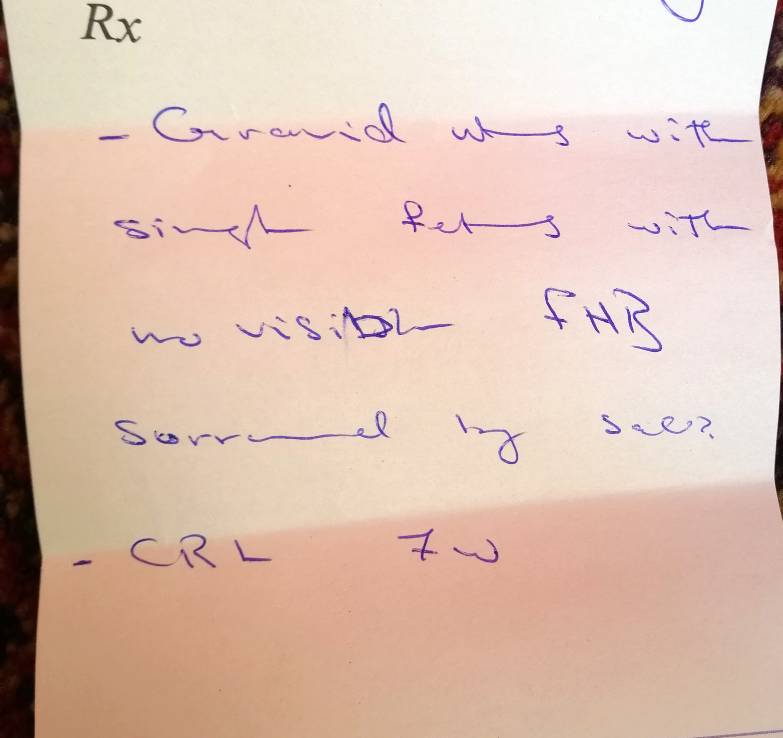 Rx
- Gravid uterus with
single fetus with
no visible FHB
Sorround by sac?
- CRL 7w